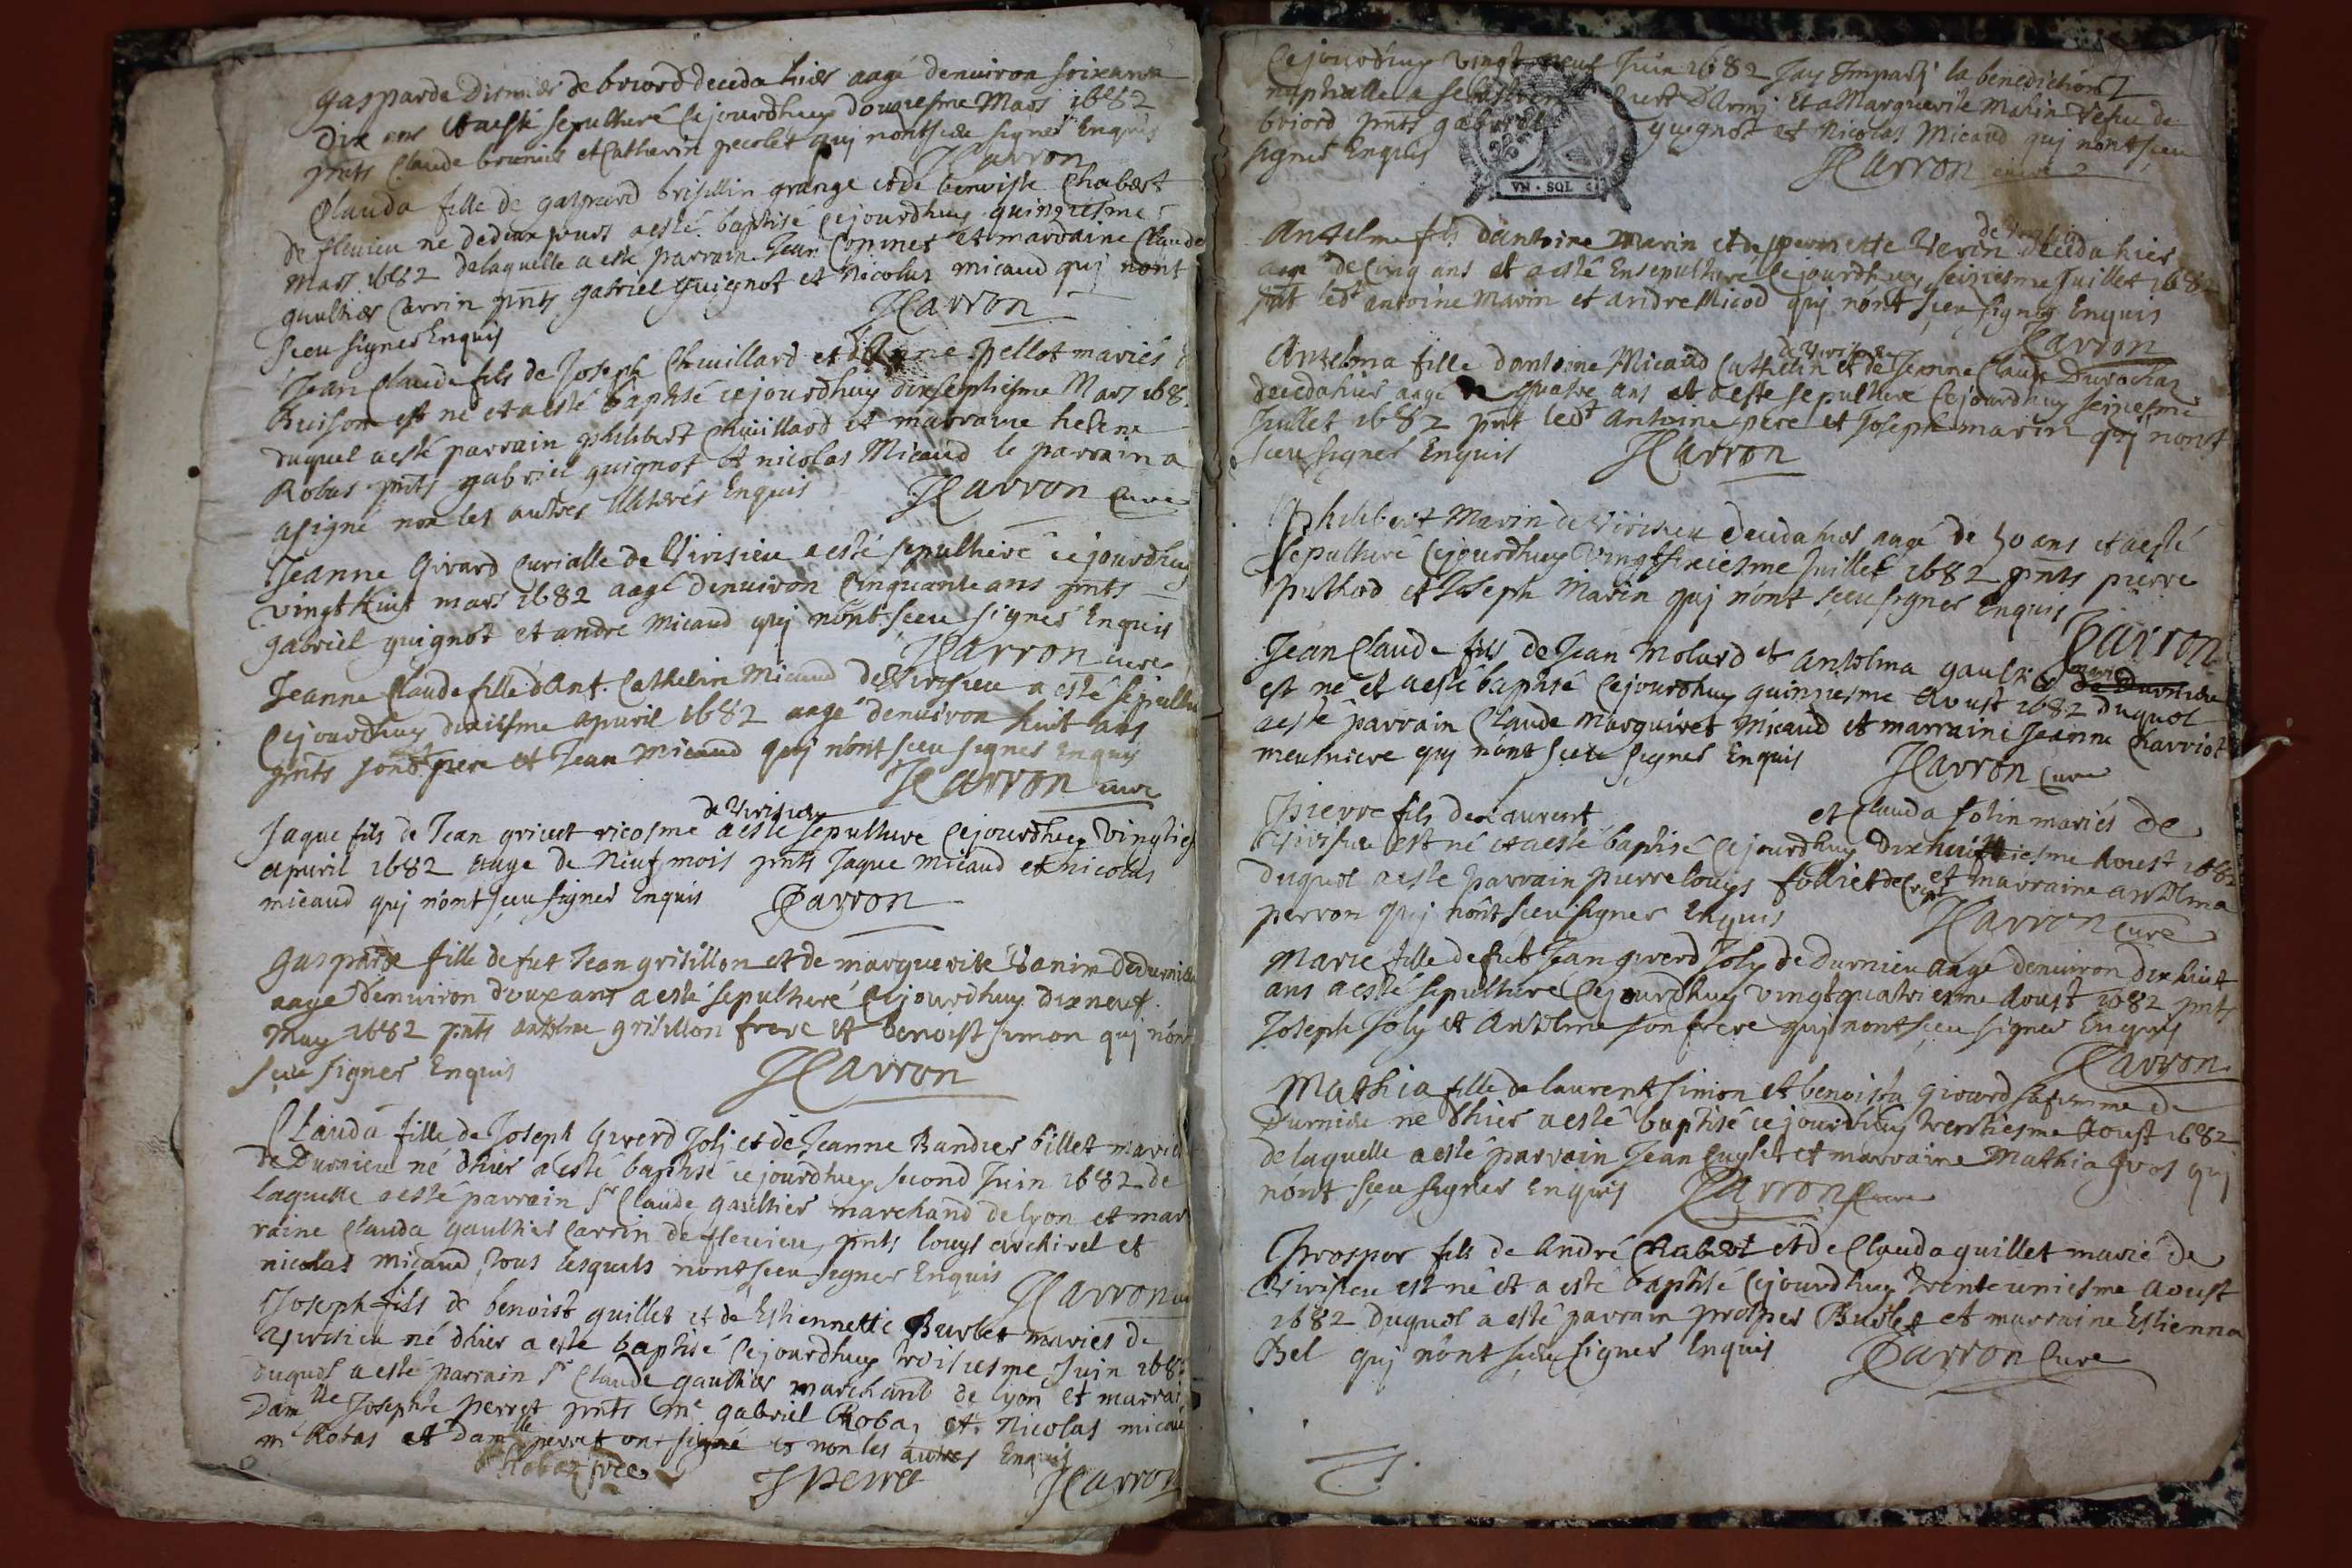 gasparde de briord deceda hier aagé denuiron soixante
dix ans et a esté sepulturé cejourdhuy douziesme Mars 1682
pnts Claude et Catherin pecolet quj nont sceu signer Enquis
JCarron
Clauda fille de gaspard brisillin grange et de benoiste Chabert
de fleurieu ne de deux jours a esté baptisé cejourdhuy quinziesme
Mars 1682 delaquelle a esté parrain Jean et marraine Claude
gaultier Carrin pnts gabriel guignot et Nicolas micaud quj nont
sceu signer Enquis JCarron
Jean Claude fils de Joseph Chuillard et d'Anne pellot mariés
Buisson est né et a esté baptisé cejourdhuy dixseptiesme Mars 168
duquel a esté parrain philibert Chuillard et marraine helene
Robas pnts gabriel guignot et nicolas Micaud le parrain a
a signé non les autres Illiterés Enquis JCarron Curé
Jeanne Girard Curialle de Virisieu a esté sepulturé cejourdhuy
vingt huit mars 1682 aagé denuiron Cinquante ans pnts
gabriel guignot et andré micaud quj nont sceu signer Enquis
JCarron curé
Jeanne Claude fille d'Ant. Cathelin Micaud de Virisieu a esté sepultu
Cejourdhuy dixiesme apuril 1682 aagé denuiron huit ans
pnts sondt pere et Jean Micaud quj nont sceu signer Enquis
JCarron curé
de Virisieu
Jaque fils de Jean a esté sepulturé Cejourdhuy Vingties
apuril 1682 aagé de Neuf mois pnts Jaque Micaud et nicolas
micaud quj nont sceu signer Enquis JCarron
gasparde fille de fut Jean grisillon et de marguerite de durnieu
aagé denuiron deux ans a esté sepulturé Cejourdhuy dixneuf
May 1682 pnts antelme grisillon frere et benoist simon quj nont
sceu signer Enquis JCarron
Clauda fille de Joseph Joly et de Jeanne billet mariés
de Durnieu né dhier a esté baptisé cejourdhuy second Juin 1682 de
laquelle a esté parrain Sr Claude gaultier marchand de lyon et mar
raine Clauda gaultier Carrin de fleurieu pnts louys et
nicolas micaud tous lesquels nont sceu signer Enquis
JCarron
Joseph fils de benoist guillet et de Estiennette Burlet mariés de
Virisieu né dhier a esté baptisé Cejourdhuy troisiesme Juin 168
duquel a esté parrain Sr Claude gaultier marchand de lyon et marrai
damlle Josephte perret pnts Me gabriel Robas et Nicolas micau
mr Robas et damlle perret ont signé et non les autres Enquis
Robaz J perret JCarron
Cejourdhuy Vingt neuf Juin 1682 Jay Imparty la benediction
nuptialle a et a Marguerite Marin Vefue de
briord pnts gabriel guignot et Nicolas Micaud quj nont sceu
signer Enquis JCarron curé
VN · SOL
Antelme fils d'antoine Marin et de pernette deceda hier
aagé de Cinq ans et a esté Ensepulturé Cejourdhuy seiziesme Juillet 1682
pnt ledt antoine Marin et andre Micod quj nont sceu signer Enquis
JCarron
de Virisieu
Antelma fille dantoine Micaud Cathelin et de Jeanne Claude
deceda hier aagé de quatre ans et a esté sepulturé Cejourdhuy seiziesme
Juillet 1682 pnt ledt Antoine pere et Joseph marin quj nont
sceu signer Enquis JCarron
Philibert Marin de Virisieu deceda hier aagé de 50 ans et a esté
sepulturé Cejourdhuy Vingtsixiesme Juillet 1682 pnts pierre
puthod et Joseph Marin quj nont sceu signer Enquis
JCarron
Jean Claude fils de Jean Molard et Antelma gaultier
est né et a esté baptisé Cejourdhuy quinziesme Aoust 1682 duquel
a esté parrain Claude Marguiret Micaud et marraine Jeanne Charriot
meusniere quj nont sceu signer Enquis JCarron Curé
Pierre fils de Laurent et Clauda folin mariés de
Virisieu est né et a esté baptisé Cejourdhuy dixhuitiesme Aoust 1682
Duquel a esté parrain pierre louys folliet et marraine antelma
perron quj nont sceu signer Enquis JCarron curé
Marie fille de fut Jean Joly de Durnieu aagé denuiron dixhuit
ans a esté sepulturé Cejourdhuy Vingtquatriesme Aoust 1682 pnts
Joseph Joly et Antelme son frere quj nont sceu signer Enquis
JCarron
Mathia fille de laurent simon et benoista girard sa femme de
Durnieu né dhier a esté baptisé cejourdhuy trentiesme Aoust 1682
delaquelle a esté parrain Jean Cuglet et marraine Mathia quj
nont sceu signer Enquis JCarron Curé
Prosper fils de André Chabert et de Clauda guillet mariés de
Virisieu est né et a esté baptisé Cejourdhuy trente uniesme Aoust
1682 duquel a esté parrain prosper Burlet et marraine Estienna
Bel quj nont sceu signer Enquis JCarron Curé